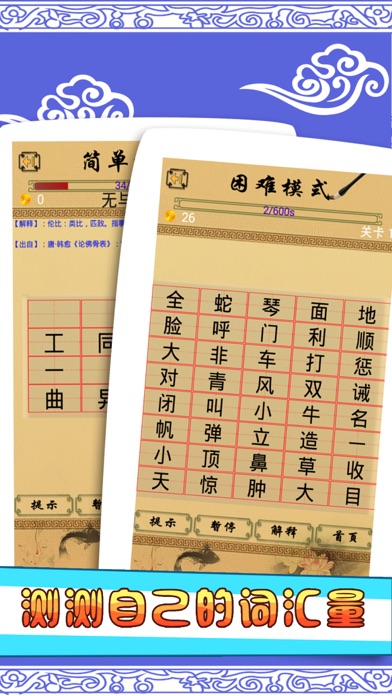 简单
34/
0
无与
【解释】：伦比：类比，匹敌。指事
【出自】：唐·韩愈《论佛骨表》：
工 同
一
曲 异
提示
困难模式
2/600s
26
关卡
全 蛇 琴 面 地
脸 呼 门 利 顺
大 非 车 打 惩
对 青 风 双 诫
闭 叫 小 牛 名
帆 弹 立 造 一
小 顶 鼻 草 收
天 惊 肿 大 目
提示 暂停 解释 首頁
测测自己的词汇量